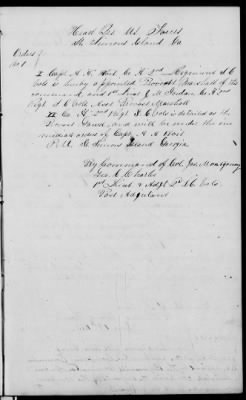 Head Qrs U.S. Forces
St. Simons Island Ga
Orders
No 1
I Capt. A. H. Co. K 2nd Regiment S. C.
Vols is hereby appointed Provost Marshall of this
command, and 1st Lieut J. M. Co. H 2nd
Regt S. C. Vols Asst Provost Marshall
II Co. K 2nd Regt S. C. Vols is detailed as the
Provost Guard, and will be under the
orders of Capt. A. H.
St Simons Island Georgia
By Command of Col. Jas. Montgomery
Geo. E.
1st Lieut & Adjt 2nd S. C. Vols
Post Adjutant